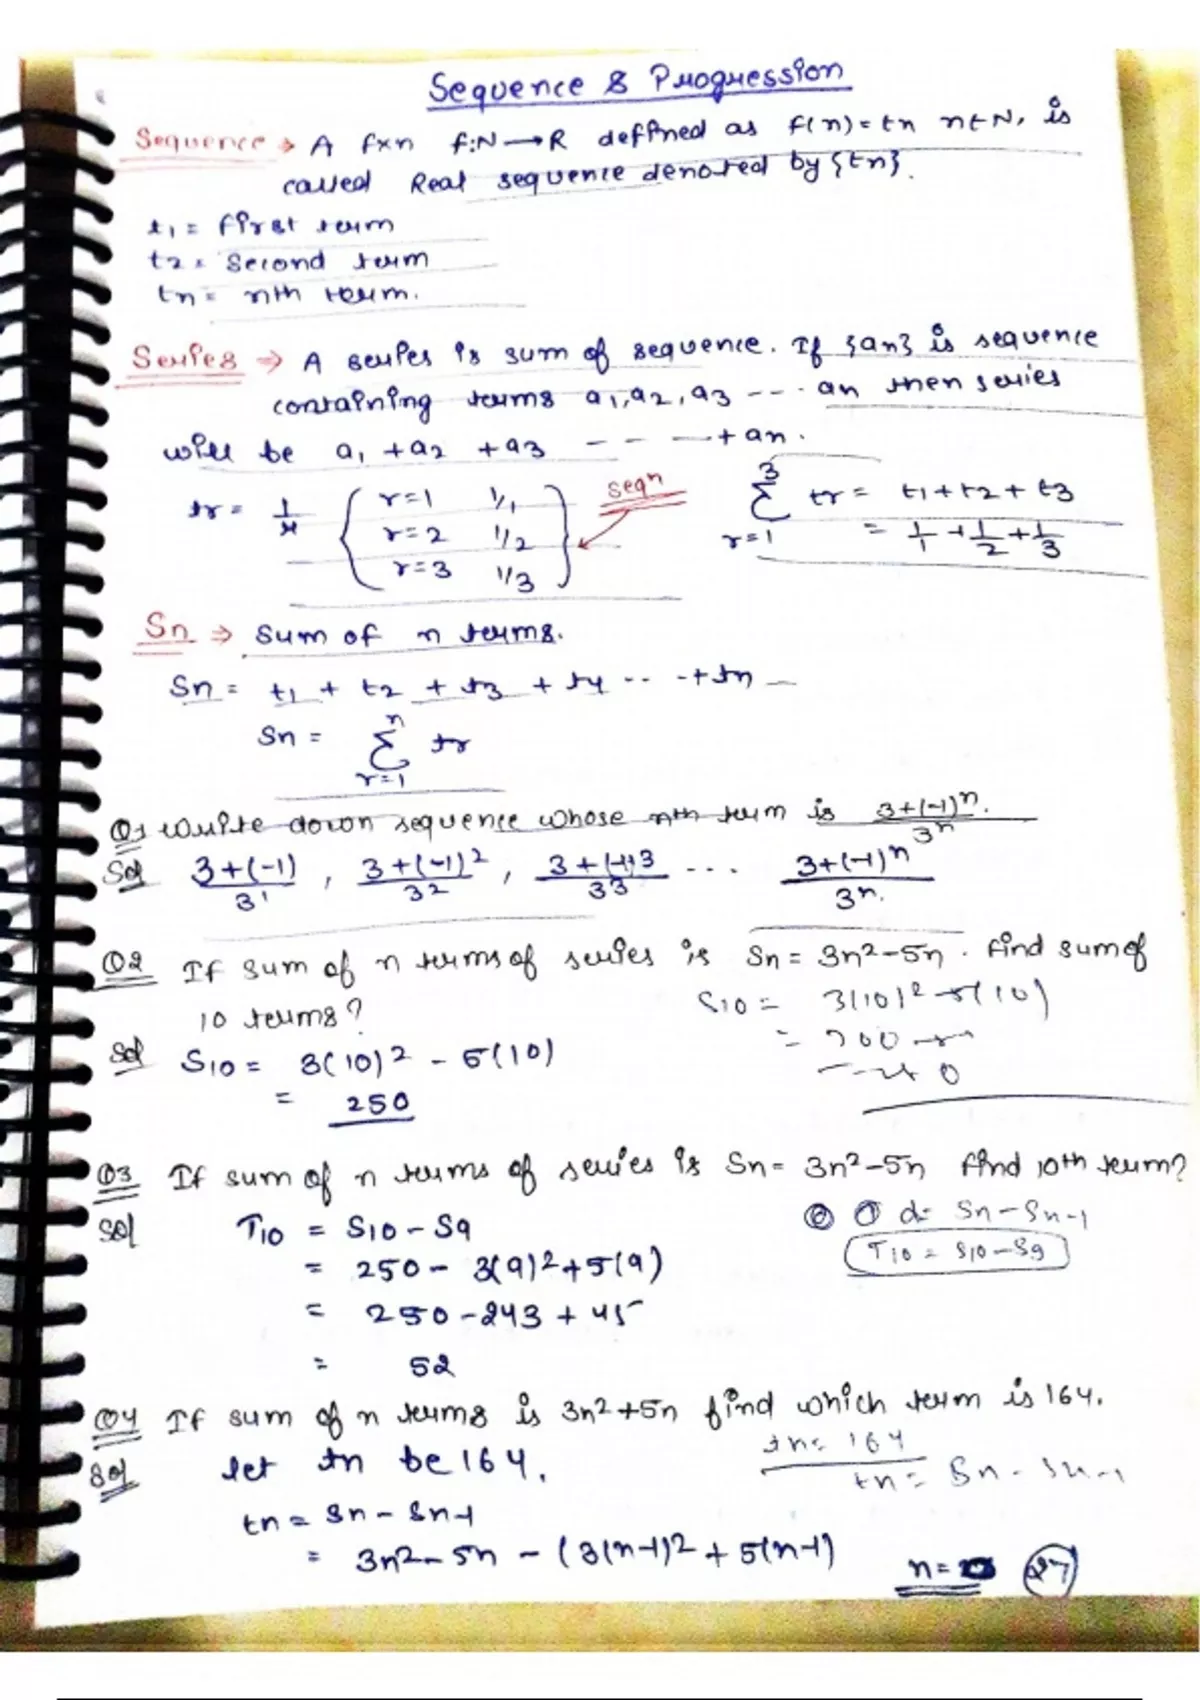 Sequence & Progression
Sequence → A fxn f:N→R defined as f(n)=tn n∈N, is
called Real sequence denoted by {tn}.
t1 = first term
t2 = second term
tn = nth term.
Series ⇒ A series is sum of sequence. If {an} is sequence
containing terms a1, a2, a3 --- an then series
will be a1 + a2 + a3 - - - + an.
tr = 1/r { r=1 1/1 } seqn
r=2 1/2
r=3 1/3
3 Σ r=1 tr = t1+t2+t3
= 1/1 + 1/2 + 1/3
Sn ⇒ Sum of n terms.
Sn = t1 + t2 + t3 + t4 -- -+tn
Sn = n Σ r=1 tr
Q1 Write down sequence whose nth term is 3+(-1)^n / 3^n.
Sol 3+(-1) / 3^1, 3+(-1)^2 / 3^2, 3+(-1)^3 / 3^3 ... 3+(-1)^n / 3^n.
Q2 If sum of n terms of series is Sn = 3n²-5n. find sum of
10 terms?
S10 = 3(10)²-5(10)
Sol S10 = 3(10)² - 5(10)
= 250
Q3 If sum of n terms of series is Sn = 3n²-5n find 10th term?
Sol T10 = S10 - S9
d = Sn - Sn-1
T10 = S10 - S9
= 250 - 3(9)²+5(9)
= 250 - 243 + 45
= 52
Q4 If sum of n terms is 3n²+5n find which term is 164.
tn = 164
Sol let tn be 164.
tn = Sn - Sn-1
tn = Sn - Sn-1
= 3n² - 5n - (3(n-1)² + 5(n-1)
n = 27